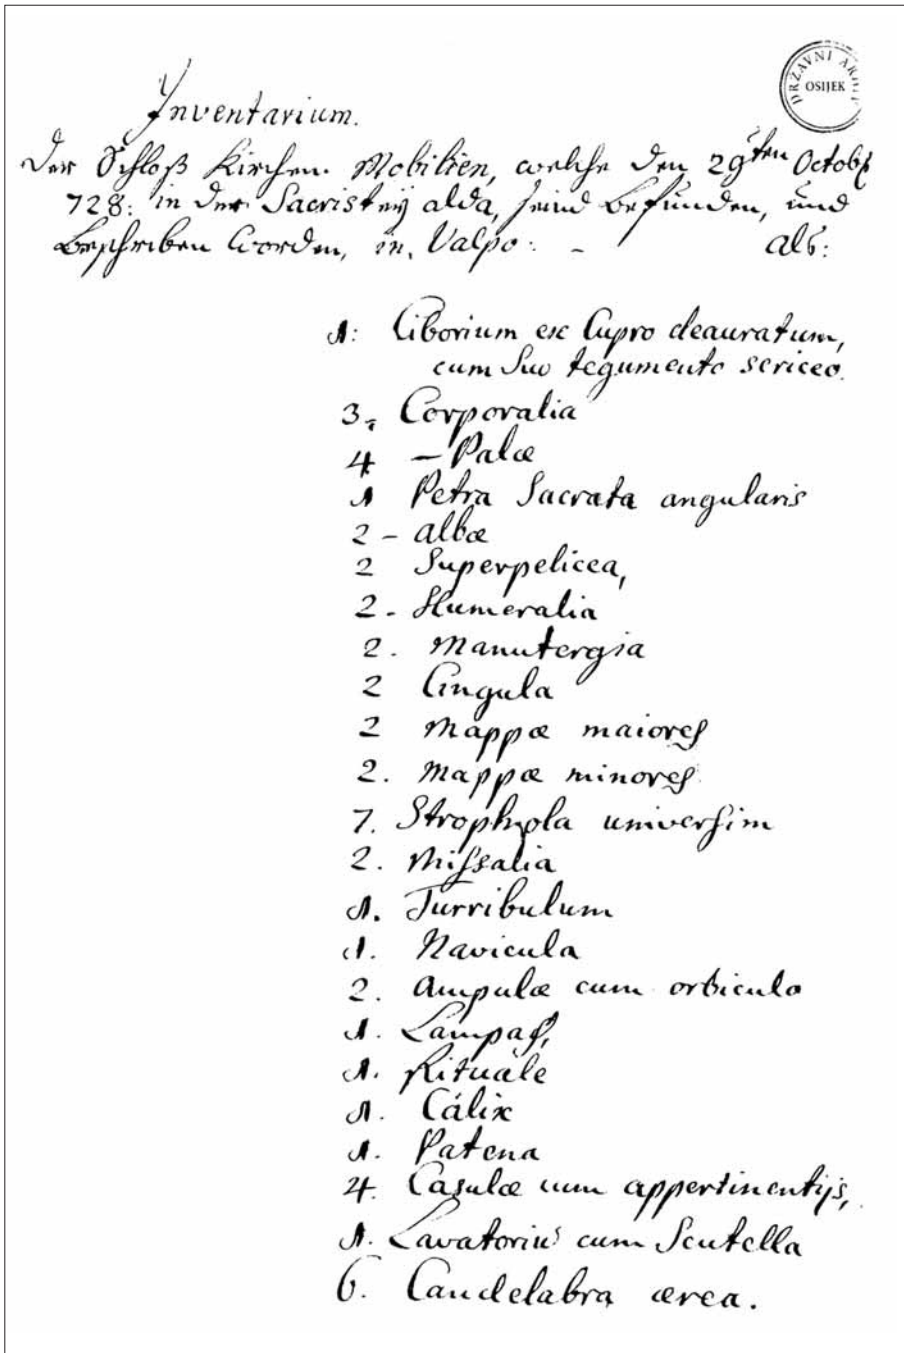 DRŽAVNI ARHIV
OSIJEK
Inventarium.
Der Schloß Kirchen Mobilien, welche den 29ten Octobr
728: in der Sacristeÿ alda, seind befunden, und
beschriben worden, in, Valpo: - als:
1: Ciborium ex Cupro deauratum,
cum Suo tegumento sericeo.
3, Corporalia
4 - Palæ
1 Petra Sacrata angularis
2 - albæ
2 Superpelicea,
2 - Humeralia
2. Manutergia
2 Cingula
2 Mappæ maiores
2. Mappæ minores
7. Strophyola universim
2. Missalia
1. Turribulum
1. Navicula
2. Ampulæ cum orbiculo
1. Lampas,
1. Rituale
1. Cálix
1. Patena
4. Casulæ cum appertinentijs,
1. Lavatorius cum Scutella
6. Candelabra ærea.